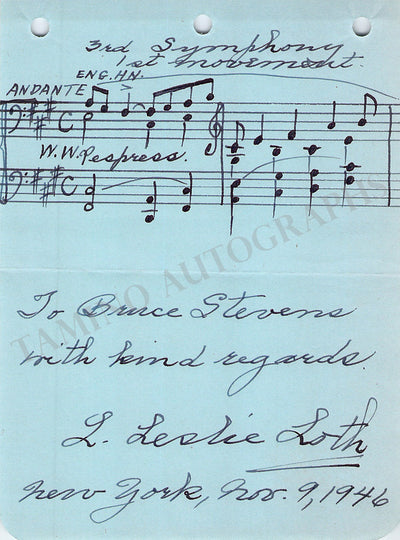 3rd Symphony
1st movement.
ENG. HN.
ANDANTE
C
W.W. P espress.
C
TAMINO AUTOGRAPHS
To Bruce Stevens
with kind regards.
L. Leslie Loth
New York, Nov. 9, 1946